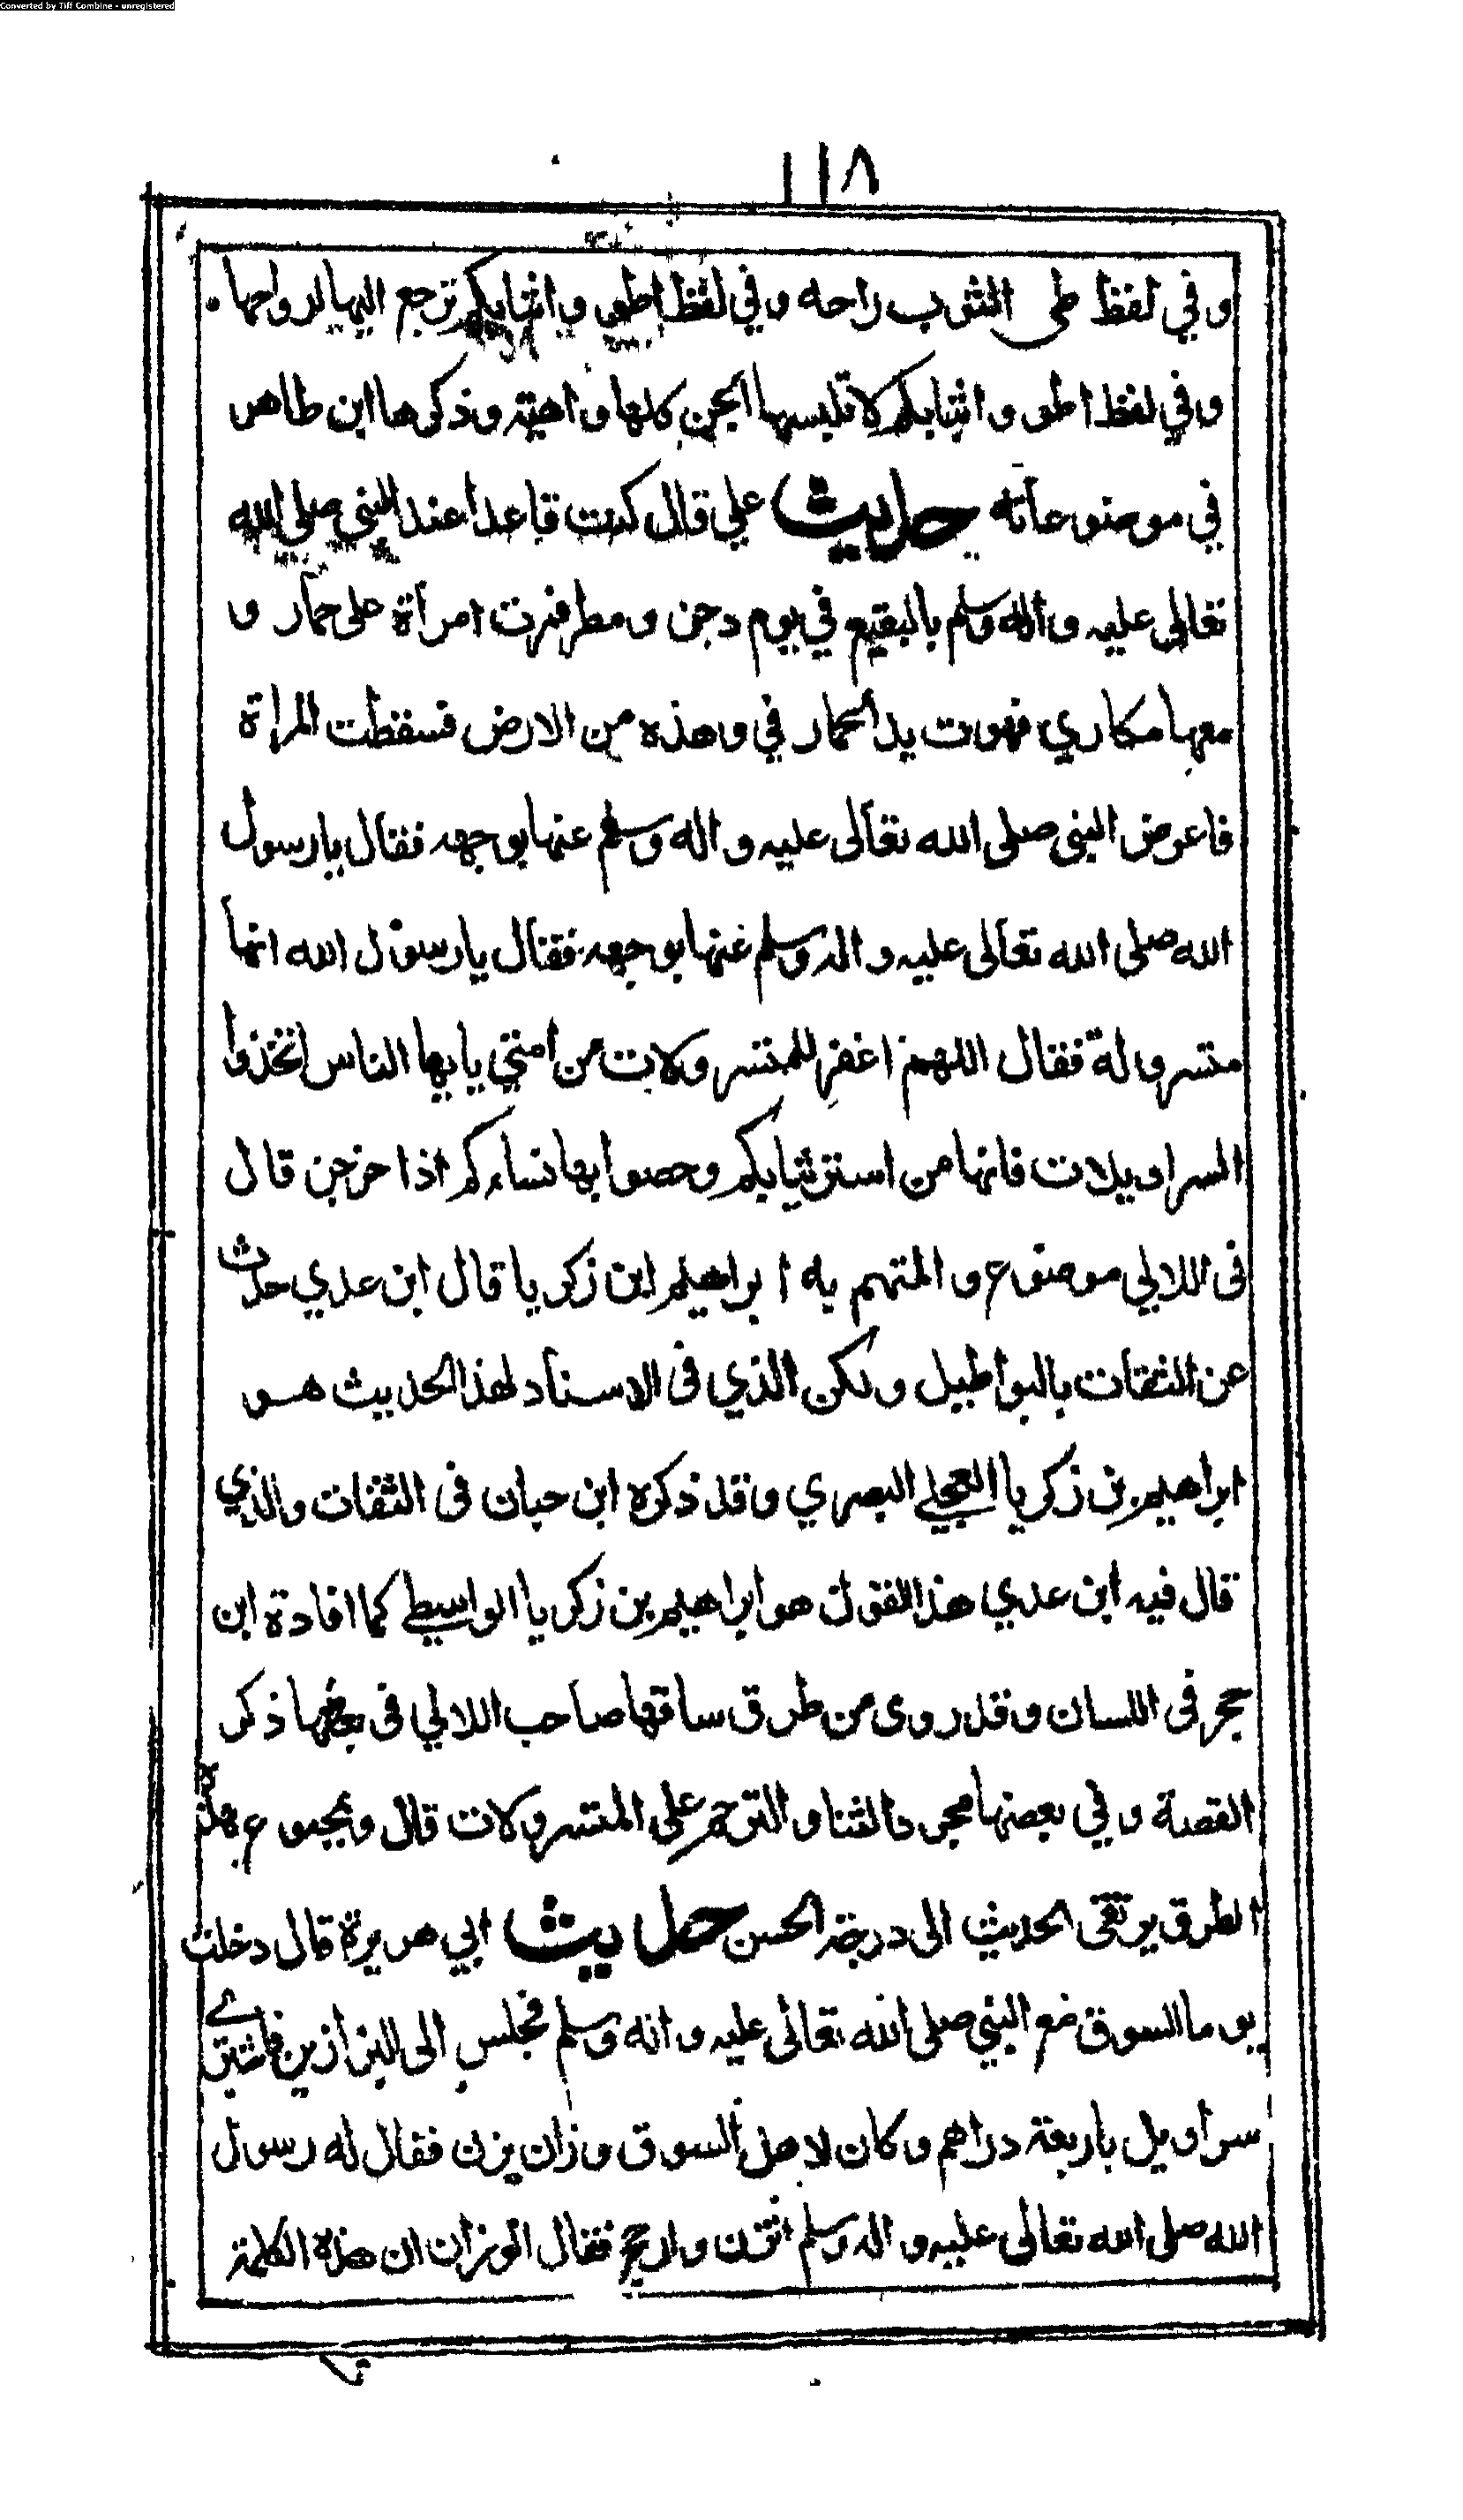 Converted by Tiff Combine - unregistered
١١٨
وفي لفظ طى الثوب راحه وفي لفظ اطووا ثيابكم ترجع اليها ارواحها.
وفي لفظ اطووا ثيابكم لا تلبسها الجن كلها واهية وذكرها ابن طاهر
في موضوعاته حديث علي قال كنت قاعدا عند النبي صلى الله
تعالى عليه واله وسلم بالبقيع في يوم دجن ومطر فمرت امرأة على حمار و
معها مكاري فهوت يد الحمار في وهذه من الارض فسقطت المراة
فاعرض النبي صلى الله تعالى عليه واله وسلم عنها بوجهه فقال يا رسول
الله صلى الله تعالى عليه واله وسلم عنها بوجهه فقال يا رسول الله انها
متسرولة فقال اللهم اغفر للمتسرولات من امتي يايها الناس اتخذوا
السراويلات فانها من استر ثيابكم وحصوا بها نساءكم اذا خرجن قال
فى اللالي موضوع والمتهم به ابراهيم ابن زكريا قال ابن عدي حدث
عن الثقات بالبواطيل ولكن الذي فى الاسناد لهذا الحديث هو
ابراهيم بن زكريا العجلي البصري وقد ذكره ابن حبان فى الثقات والذي
قال فيه ابن عدي هذا القول هو ابراهيم بن زكريا الواسطي كما افادة ابن
حجر فى اللسان وقد روى من طرق ساقها صاحب اللالي فى بعضها ذكر
القصة وفي بعضها مجرد الثنا والترحم على المتسرولات قال وبمجموع هذه
الطرق يرتقى الحديث الى درجة الحسن حديث ابي هريرة قال دخلت
يوما السوق مع النبي صلى الله تعالى عليه واله وسلم فجلس الى البزازين فاشترے
سراويل باربعة دراهم وكان لاهل السوق وزان يزن فقال له رسول
الله صلى الله تعالى عليه واله وسلم اتزن وارجح فقال الوزان ان هذه الكلمة